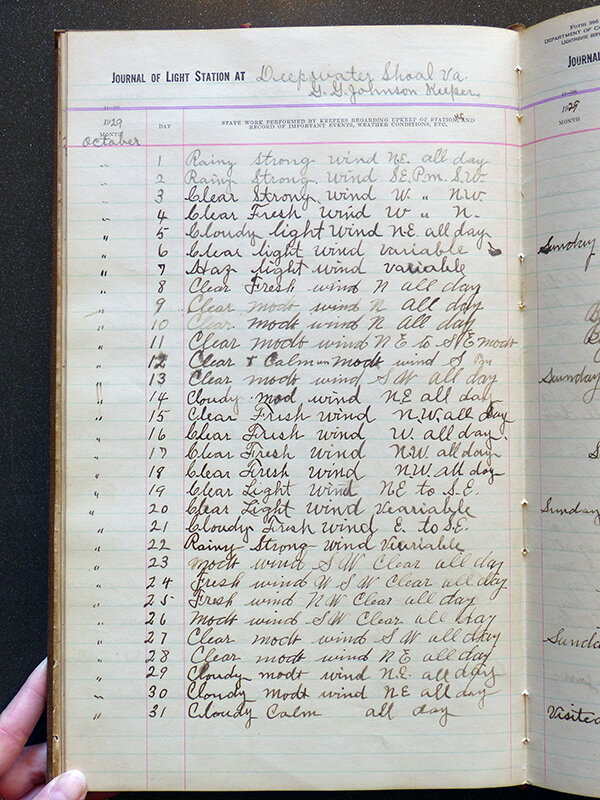 JOURNAL OF LIGHT STATION AT Deepwater Shoal Va
G. G. Johnson Keeper
1929
MONTH DAY STATE WORK PERFORMED BY KEEPERS REGARDING UPKEEP OF STATION, AND
RECORD OF IMPORTANT EVENTS, WEATHER CONDITIONS, ETC.
October
" 1 Rainy Strong wind NE. all day
" 2 Rainy Strong wind SE. P.m. S.W.
" 3 Clear Strong wind W. " N.W.
" 4 Clear Fresh Wind W " N.
" 5 Cloudy light Wind N.E. all day
" 6 Clear light wind variable
" 7 Haz light wind variable
" 8 Clear Fresh wind N all day
" 9 Clear modt wind N All day
" 10 Clear modt wind N All day
" 11 Clear modt wind N E to S E modt
" 12 Clear & Calm modt wind S
" 13 Clear modt wind S W all day
" 14 Cloudy mod wind NE all day
" 15 Clear Fresh Wind N.W. all day
" 16 Clear Fresh wind W. all day.
" 17 Clear Fresh wind N.W. all day
" 18 Clear Fresh wind N.W. all day
" 19 Clear Light wind NE to S.E.
" 20 Clear Light wind Veariable
" 21 Cloudy Fresh wind E. to S.E.
" 22 Rainy Strong wind Veariable
" 23 modt wind S W Clear all day
" 24 Fresh wind W S W Clear all day
" 25 Fresh wind N W Clear all day
" 26 Modt wind S W Clear all day
" 27 Clear modt wind S W all day
" 28 Clear modt wind N E all day
" 29 Cloudy modt wind N.E. all day
" 30 Cloudy Modt wind NE all day
" 31 Cloudy Calm all day
Form 306
DEPARTMENT OF
LIGHTHOUSE
JOURNAL
1929
MONTH
Sunday
Sunday
Sunday
Sunda
Visited